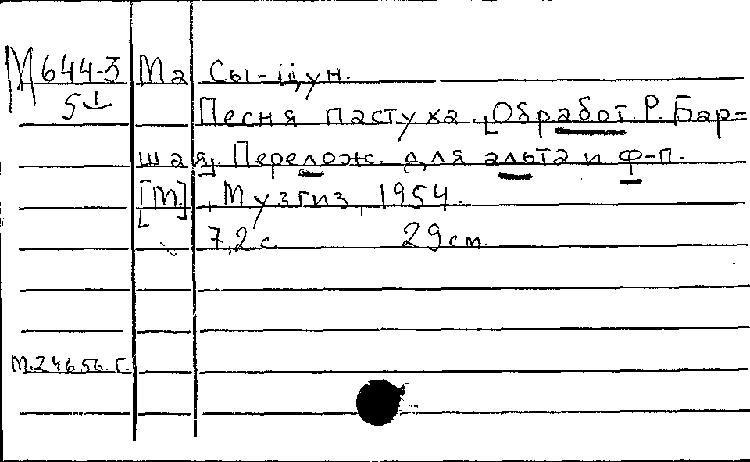 М 644-3 Ма Сы-цун.
5
Песня пастуха. [Обработ. Р. Бар=
шая]. Перелож. для альта и ф-п.
[М], Музгиз, 1954.
7,2 с. 29 см
М.24656.Г.